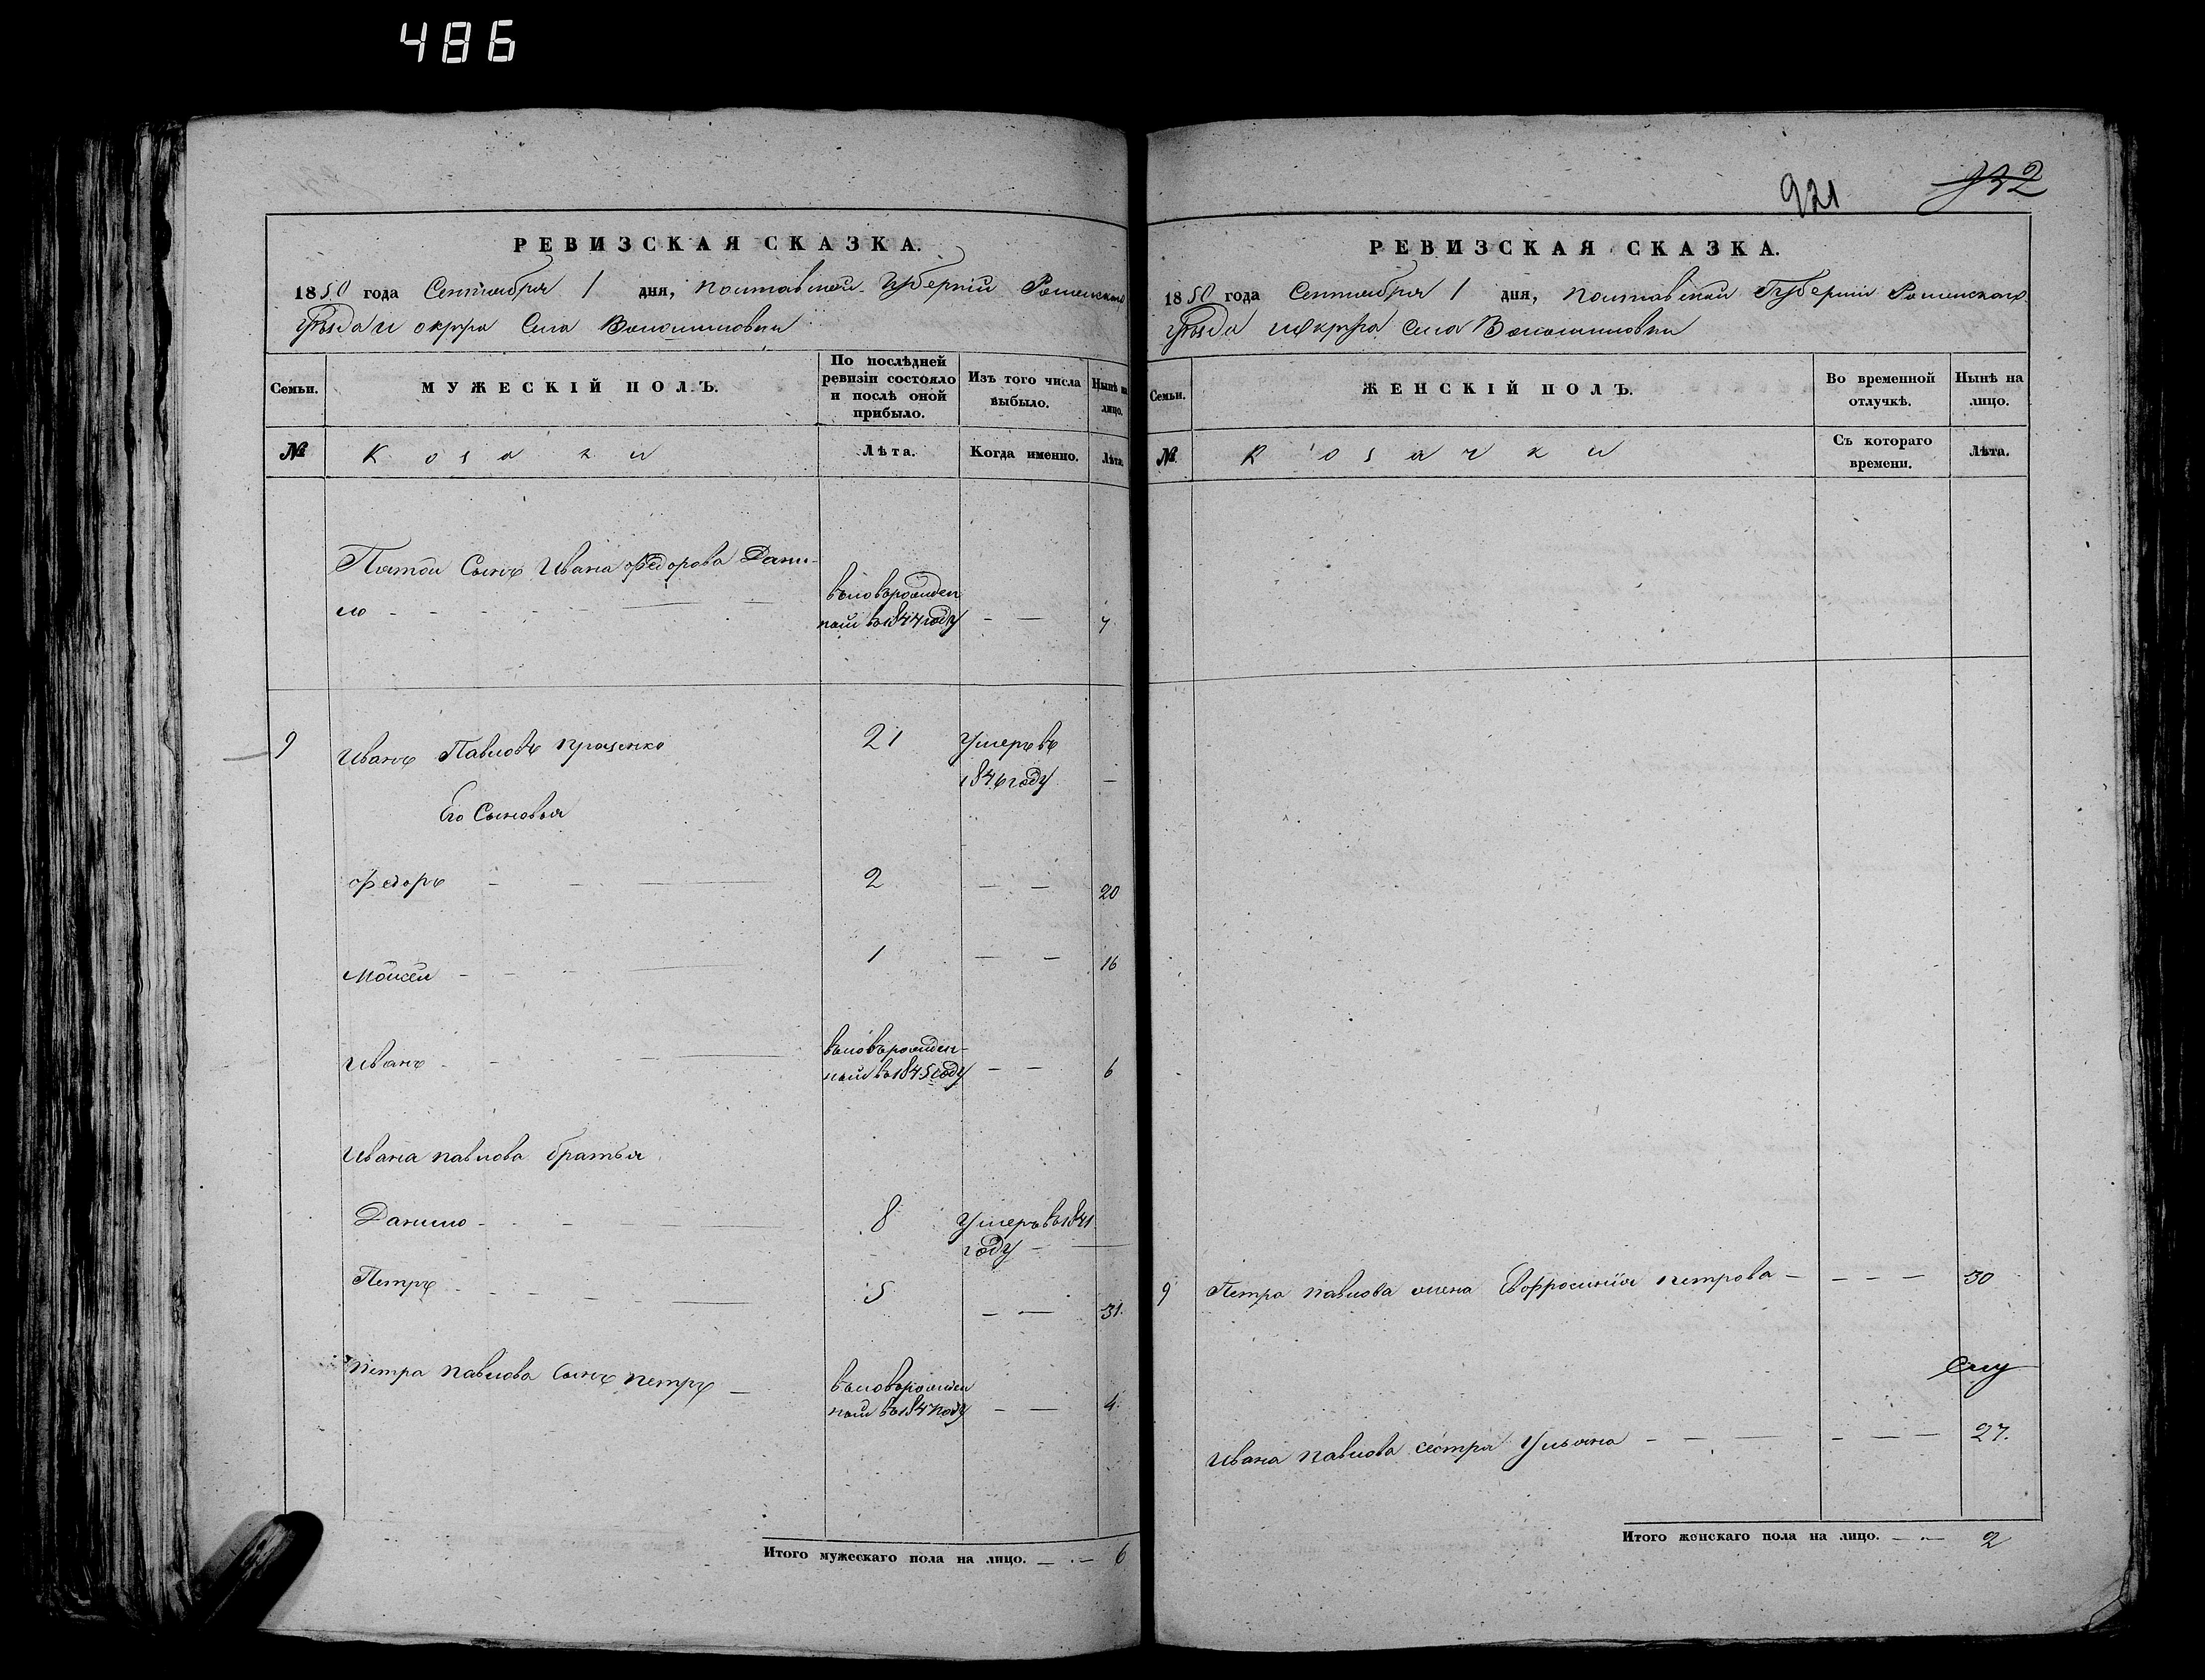 486
921
932
РЕВИЗСКАЯ СКАЗКА.
1850 года Сентября 1 дня, Полтавской Губерніи Роменского
уѣзда и округа Села Волошиновки
Семьи.
МУЖЕСКІЙ ПОЛЪ.
По послѣдней
ревизіи состояло
и послѣ оной
прибыло.
Изъ того числа
выбыло.
Нынѣ на
лицо.
№
Козаки
Лѣта.
Когда именно.
Лѣта.
Пятой Сынъ Ивана Федорова Дани-
ло
вновьрожден
ной въ 1844 году
7
9
Иванъ Павловъ Проценко
21
Умеръ въ
1846 году
Его Сыновья
Федоръ
2
20
Мойсей
1
16
Иванъ
вновьрожден-
ной въ 1845 году
6
Ивана Павлова братья
Данило
8
Умеръ въ 1841
году
Петръ
5
31.
Петра Павлова Сынъ Петръ
вновьрожден
ной въ 1847 году
4.
Итого мужескаго пола на лицо. 6
РЕВИЗСКАЯ СКАЗКА.
1850 года Сентября 1 дня, Полтавской Губерніи Роменского
уѣзда и округа Села Волошиновки
Семьи.
ЖЕНСКІЙ ПОЛЪ.
Во временной
отлучкѣ.
Нынѣ на
лицо.
№
Козачки
Съ котораго
времени.
Лѣта.
9
Петра Павлова жена Евфросинія Петрова
30
Ивана Павлова сестра Ульяна
27.
Итого женскаго пола на лицо. 2